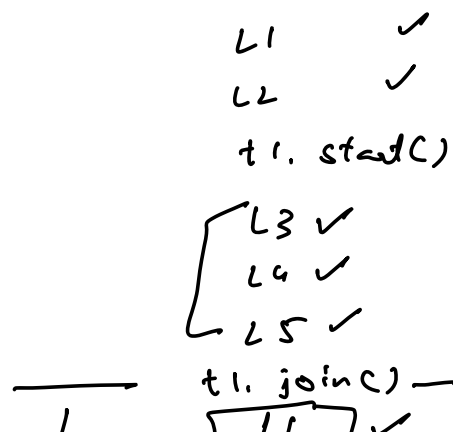 L1 ✓
L2 ✓
t1. start()
L3 ✓
L4 ✓
L5 ✓
t1. join()